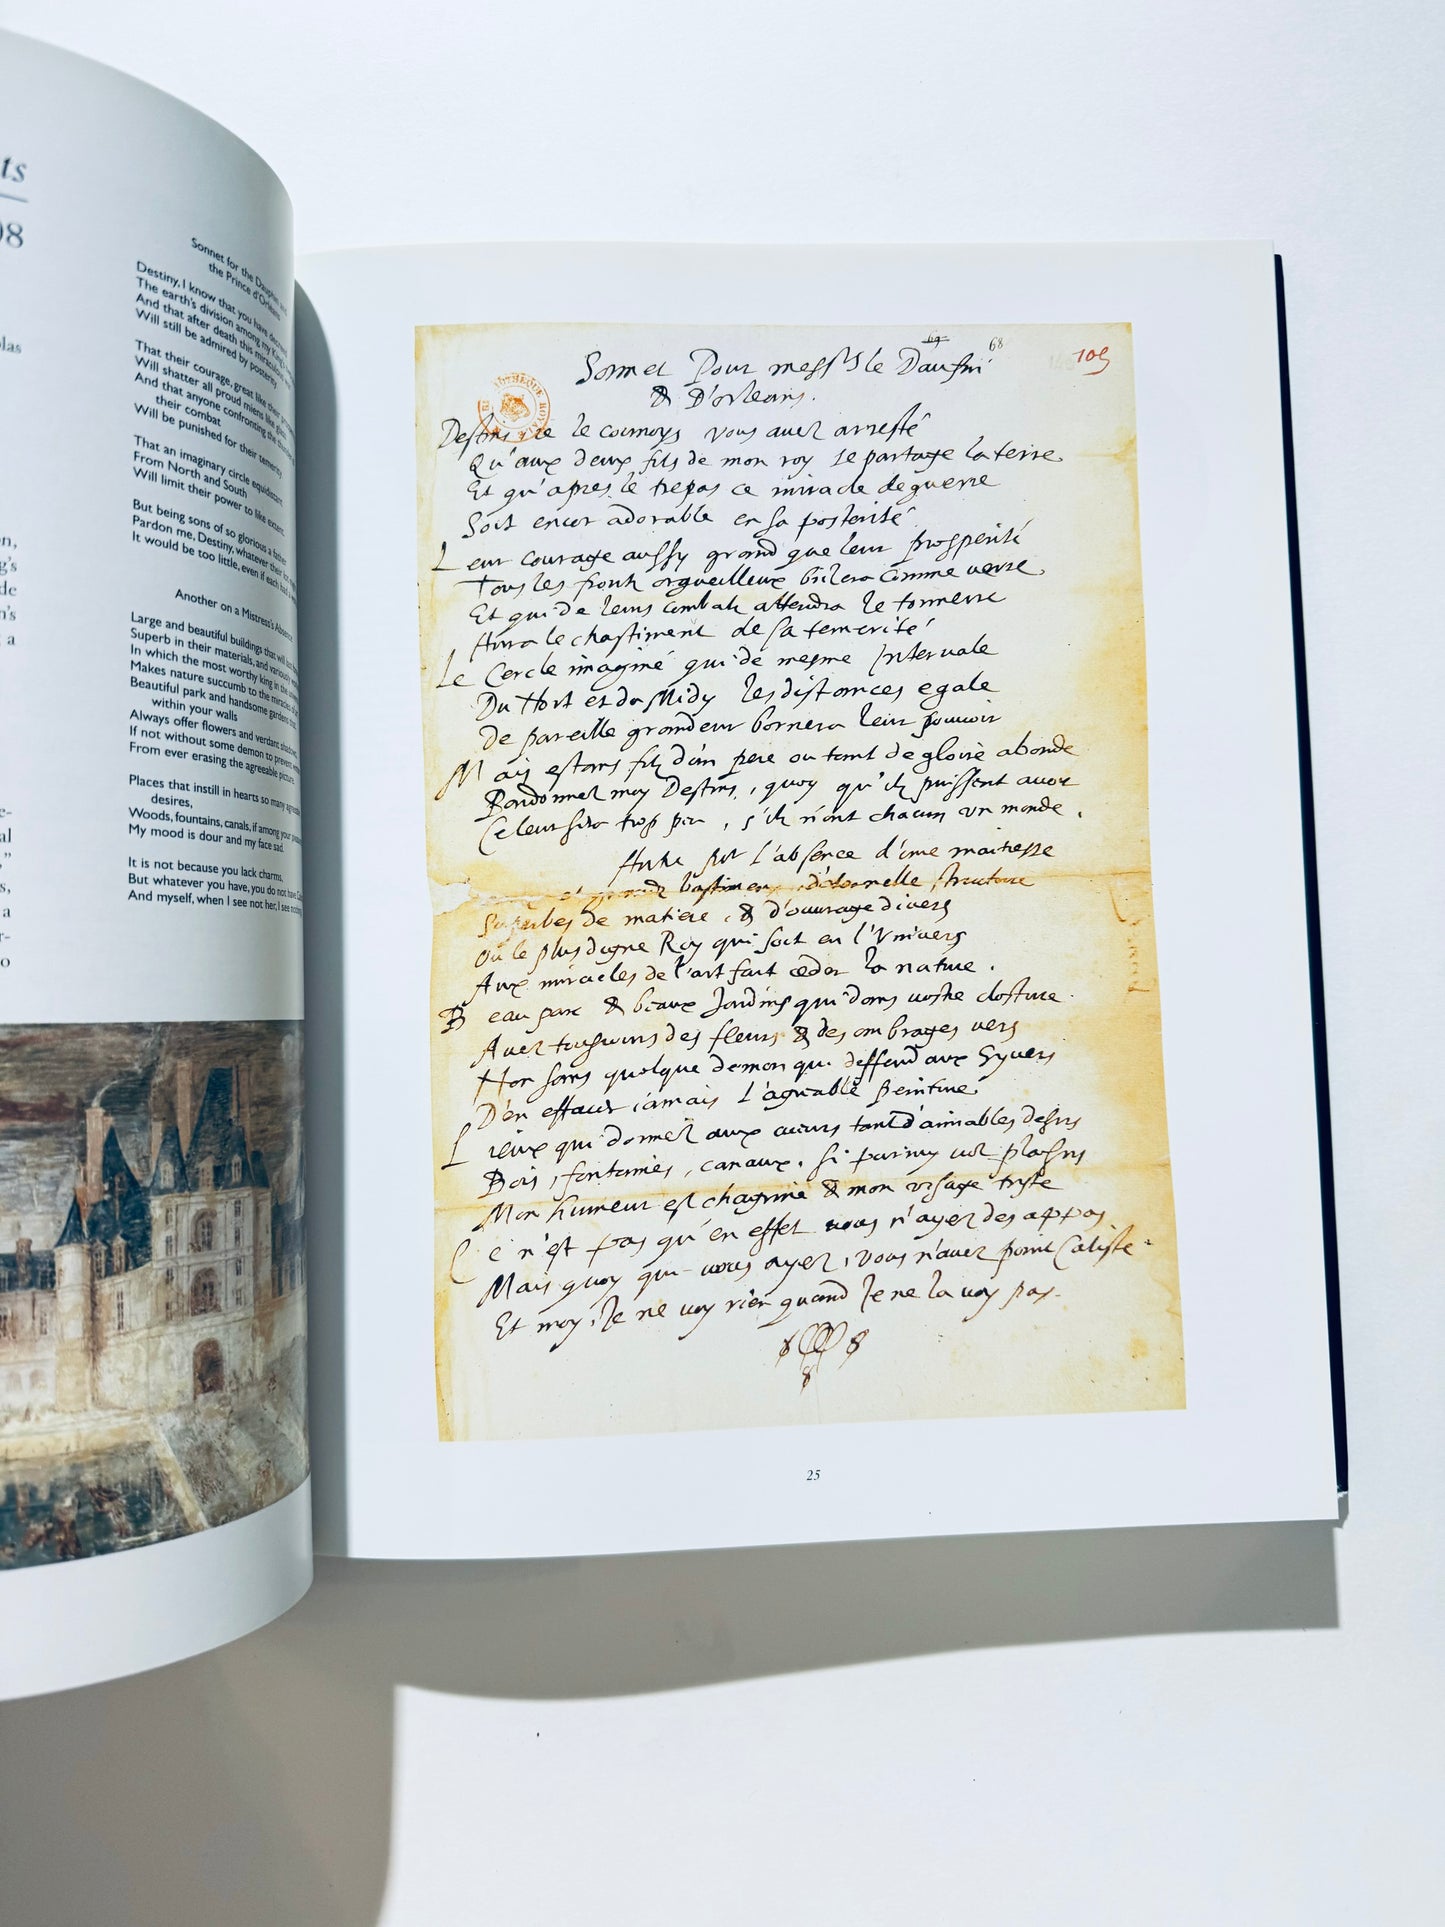 ts
08
las
n,
g's
de
n's
g a
e-
al
,"
s,
a
r-
o
Sonnet for the Dauphin and
the Prince d'Orléans
Destiny, I know that you have decreed
The earth's division among my King's
And that after death this miraculous
Will still be admired by posterity
That their courage, great like their
Will shatter all proud miens like glass
And that anyone confronting the
their combat
Will be punished for their temerity
That an imaginary circle equidistant
From North and South
Will limit their power to like extent.
But being sons of so glorious a father
Pardon me, Destiny, whatever their
It would be too little, even if each had a
Another on a Mistress's Absence
Large and beautiful buildings that will
Superb in their materials, and variously
In which the most worthy king in the
Makes nature succumb to the miracles of
Beautiful park and handsome gardens that
within your walls
Always offer flowers and verdant shadows,
If not without some demon to prevent
From ever erasing the agreeable picture.
Places that instill in hearts so many agreeable
desires,
Woods, fountains, canals, if among your
My mood is dour and my face sad.
It is not because you lack charms,
But whatever you have, you do not have
And myself, when I see not her, I see nothing
69 68 105
Sonnet Pour mess^rs le Daufin
& D'orleans.
BIBLIOTHEQUE ROYALE
Destins Je le connoys vous avez arresté
Qu'aux deux fils de mon roy se partage la terre
Et qu'apres le trepas ce miracle de guerre
Soit encor adorable en sa posterité
Leur courage aussy grand que leur prosperité
Tous les frontz orgueilleux brisera comme verre
Et qui de leurs combatz attendra le tonnerre
Aura le chastiment de sa temerité
Le Cercle imaginé qui de mesme Intervale
Du Nort et du Midy les distances egale
De pareille grandeur bornera leur pouvoir
Mais estans filz d'un pere ou tant de gloire abonde
Pardonnez moy Destins, quoy qu'ilz puissent avoir
Ce leur sera trop peu, s'ilz n'ont chacun un monde.
Autre sur l'absence d'une maitresse
bastimens d'eternelle structure
Superbes de matiere, & d'ouvrage divers
Ou le plus digne Roy qui soit en l'Univers
Aux miracles de l'art fait ceder la nature.
Beau parc & beaux Jardins qui dans vostre closture
Avez tousjours des fleurs & des ombrages vers
Non sans quelque demon qui deffend aux Hyvers
D'en effacer jamais l'agreable peinture
Lieux qui donnez aux cœurs tant d'aimables desirs
Bois, fontaines, canaux, si parmy voz plaisirs
Mon humeur est chagrine & mon visage triste
Ce n'est pas qu'en effet vous n'ayez des appas
Mais quoy que vous ayez, vous n'avez point Caliste
Et moy, Je ne voy rien quand Je ne la voy pas.
25